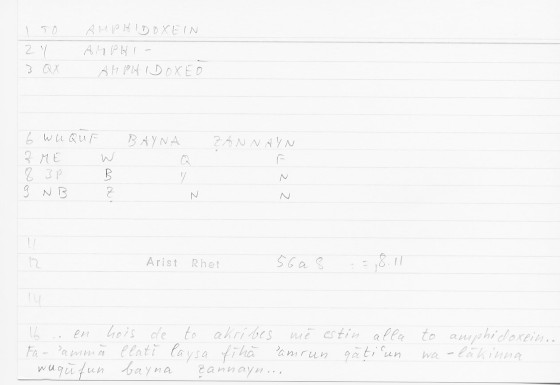 1 TO AMPHIDOXEIN
2 Y AMPHI-
3 QX AMPHIDOXEŌ
6 WUQŪF BAYNA ẒANNAYN
7 ME W Q F
8 JP B Y N
9 NB Ẓ N N
11
12 Arist Rhet 56a8 = =,8.11
14
16 .. en hois de to akribes mē estin alla to amphidoxein..
Fa-'ammā llatī laysa fīhā 'amrun qāṭi'un wa-lākinna
wuqūfun bayna ẓannayn...